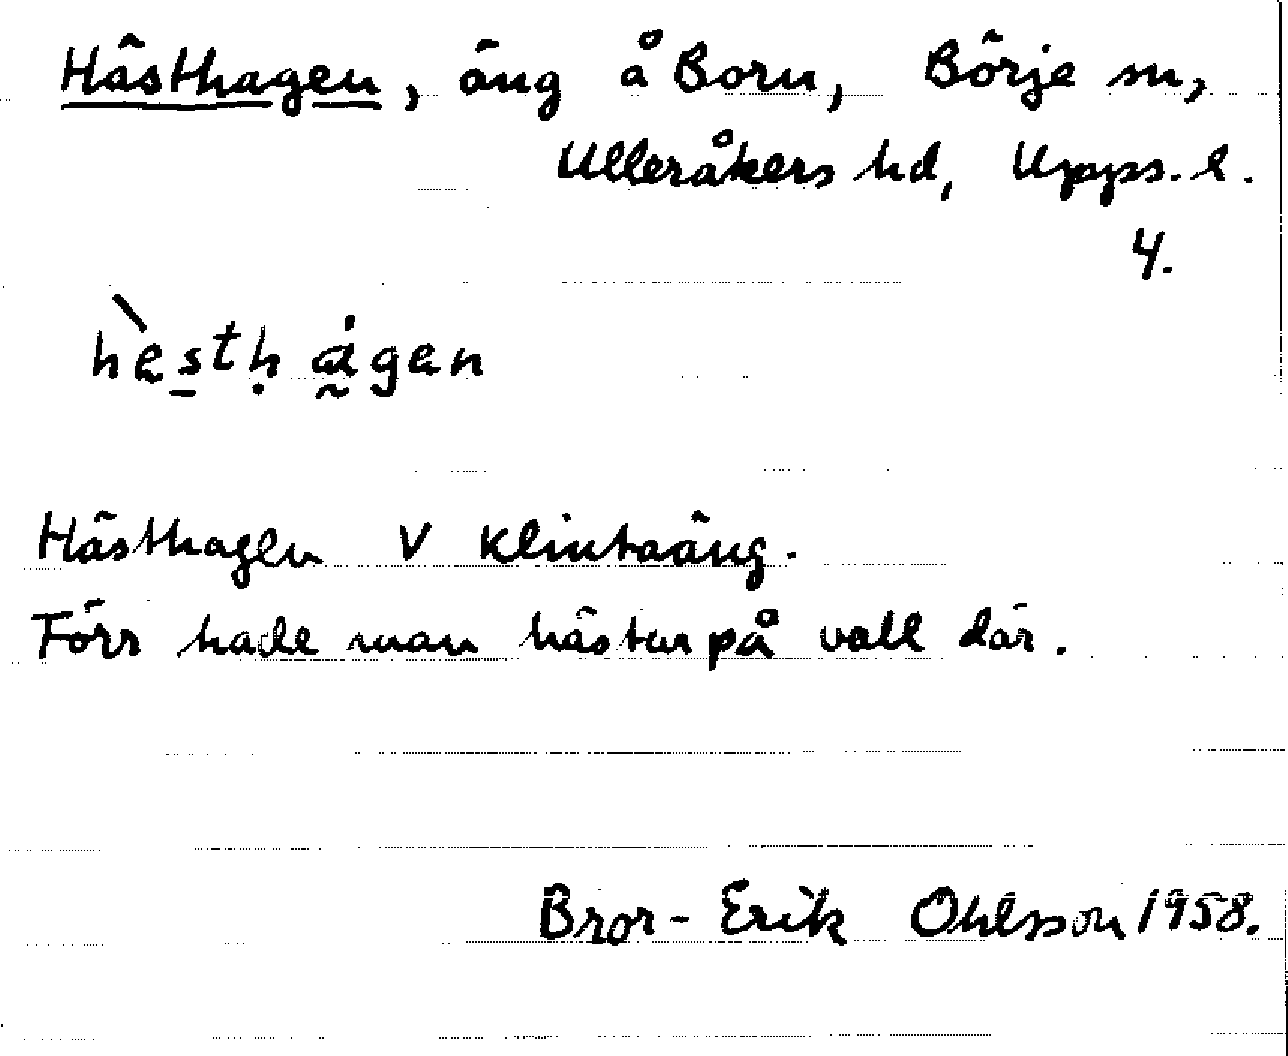 Hästhagen, äng å Born, Börje sn,
Ulleråkers hd, Upps. l.
4.
hèstḥ ågen
Hästhagen V Klintaäng.
Förr hade man hästar på vall där.
Bror-Erik Ohlsson 1958.